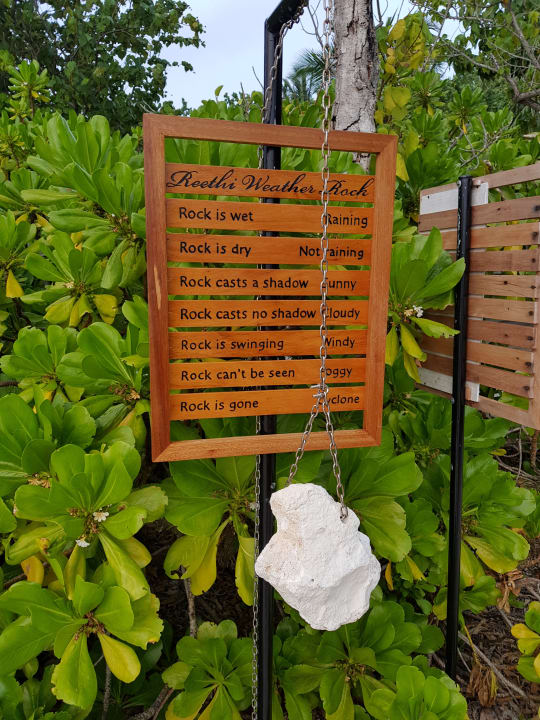 Reethi Weather Rock
Rock is wet Raining
Rock is dry Not raining
Rock casts a shadow Sunny
Rock casts no shadow Cloudy
Rock is swinging Windy
Rock can't be seen Foggy
Rock is gone Cyclone